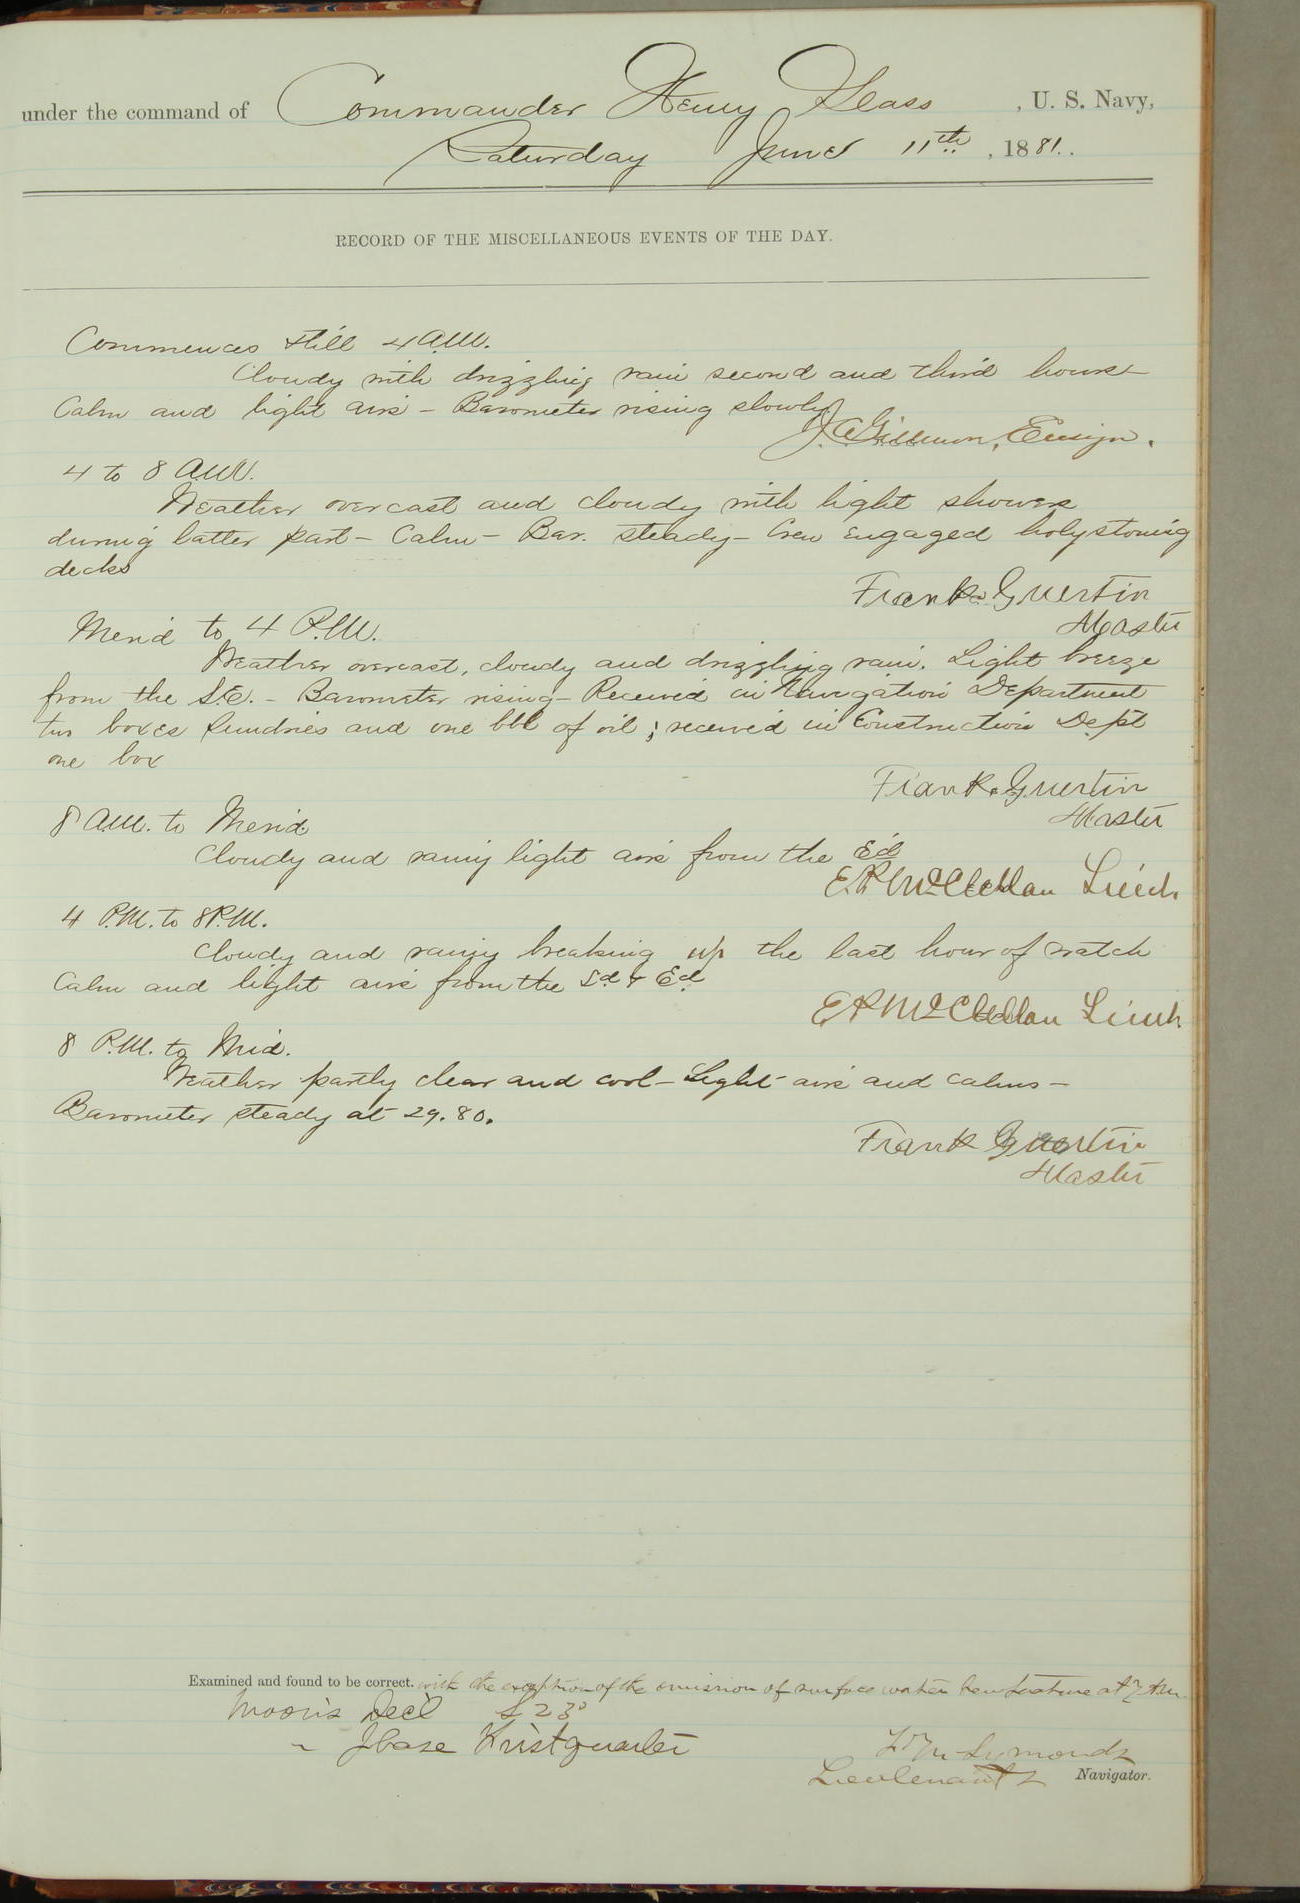 under the command of Commander Henry Glass, U. S. Navy,
Saturday June 11th, 1881.
RECORD OF THE MISCELLANEOUS EVENTS OF THE DAY.
Commences till 4 A.M.
Cloudy with drizzling rain second and third hours
Calm and light airs – Barometer rising slowly
Ensign.
4 to 8 A.M.
Weather overcast and cloudy with light showers
during latter part – Calm – Bar. steady – Crew engaged holystoning
decks
Frank Guertin
Master
Merid to 4 P.M.
Weather overcast, cloudy and drizzling rain. Light breeze
from the S.E. – Barometer rising – Received in Navigation Department
two boxes sundries and one bbl of oil; received in Construction Dept
one box
Frank Guertin
Master
8 A.M. to Merid.
Cloudy and rainy light airs from the Ed
E.P. McClellan Lieut.
4 P.M. to 8 P.M.
Cloudy and rainy breaking up the last hour of watch
Calm and light airs from the Sd & Ed
E P McClellan Lieut
8 P.M. to Mid.
Weather partly clear and cool – Light airs and calms –
Barometer steady at 29.80.
Frank Guertin
Master
Examined and found to be correct. with the exception of the omission of surface water temperature at 7 A.M.
Moon's Decl S 23°
" Phase First quarter
Symonds
Lieutenant Navigator.